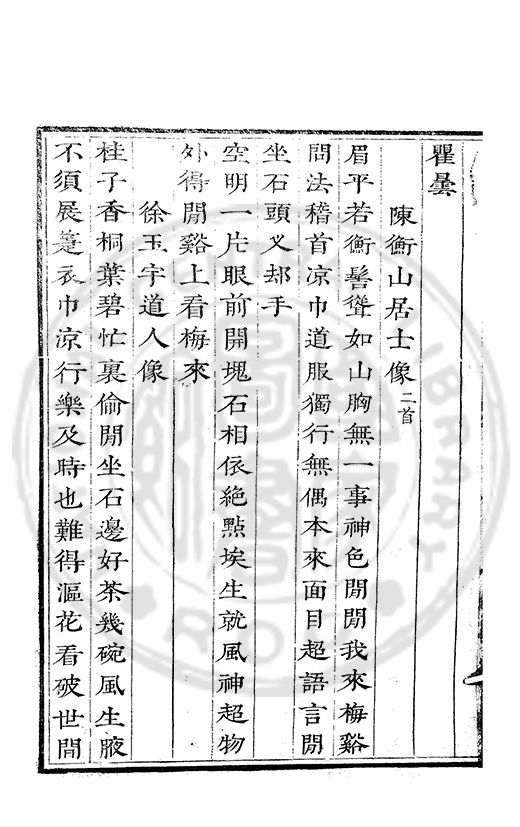 瞿曇
陳衡山居士像二首
眉平若衡髻聳如山胸無一事神色閒閒我來梅谿
問法稽首凉巾道服獨行無偶本來面目超語言閒
坐石頭义却手
空明一片眼前開塊石相依絶點埃生就風神超物
外得閒谿上看梅來
徐玉宇道人像
桂子香桐葉碧忙裏偷閒坐石邊好茶幾碗風生腋
不須展蹇衣巾凉行樂及時也難得漚花看破世間